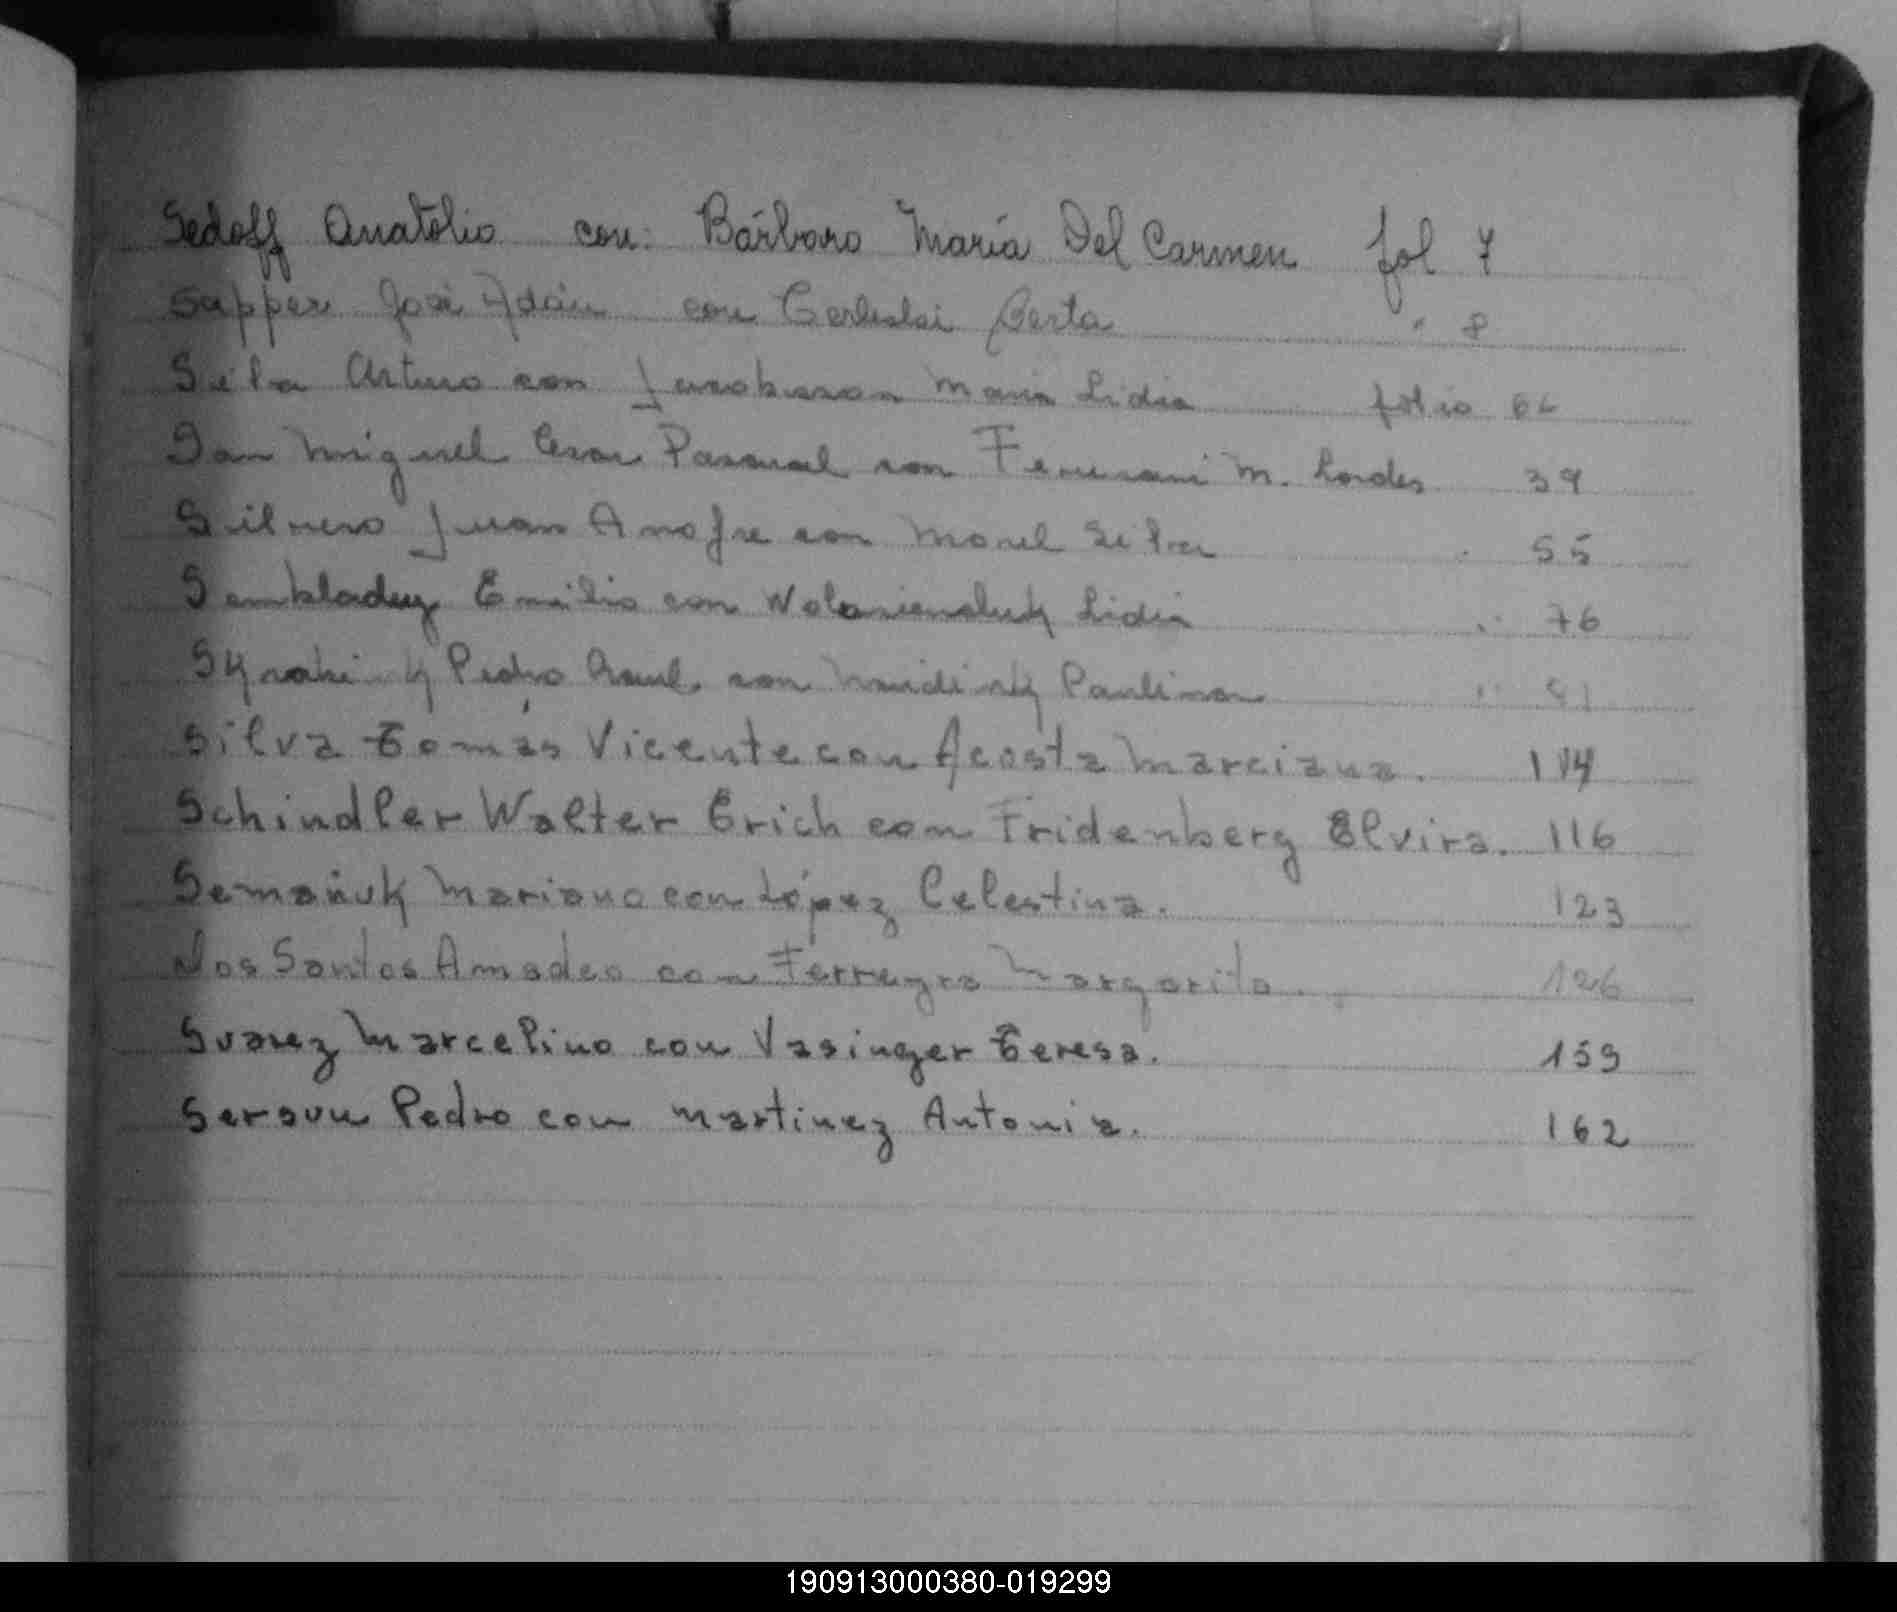 Sedoff Anatolio con: Bárbaro María Del Carmen fol 7
Sapper José Adán con Berta " 8
Arturo con María Lidia folio
San Miguel Cesar Pascual con M. Lordes 39
Silvero Juan Anofre con Morel 55
Emilio con Lidia " 76
Pedro Raul con Paulina "
Silva Tomás Vicente con Acosta Marciana. 114
Schindler Walter Erich con Fridenberg Elvira. 116
Semañuk Mariano con López Celestina. 123
Dos Santos Amadeo con Ferreyra Margarita. 126
Suarez Marcelino con Vasinger Teresa. 159
Seroun Pedro con Martinez Antonia. 162
190913000380-019299